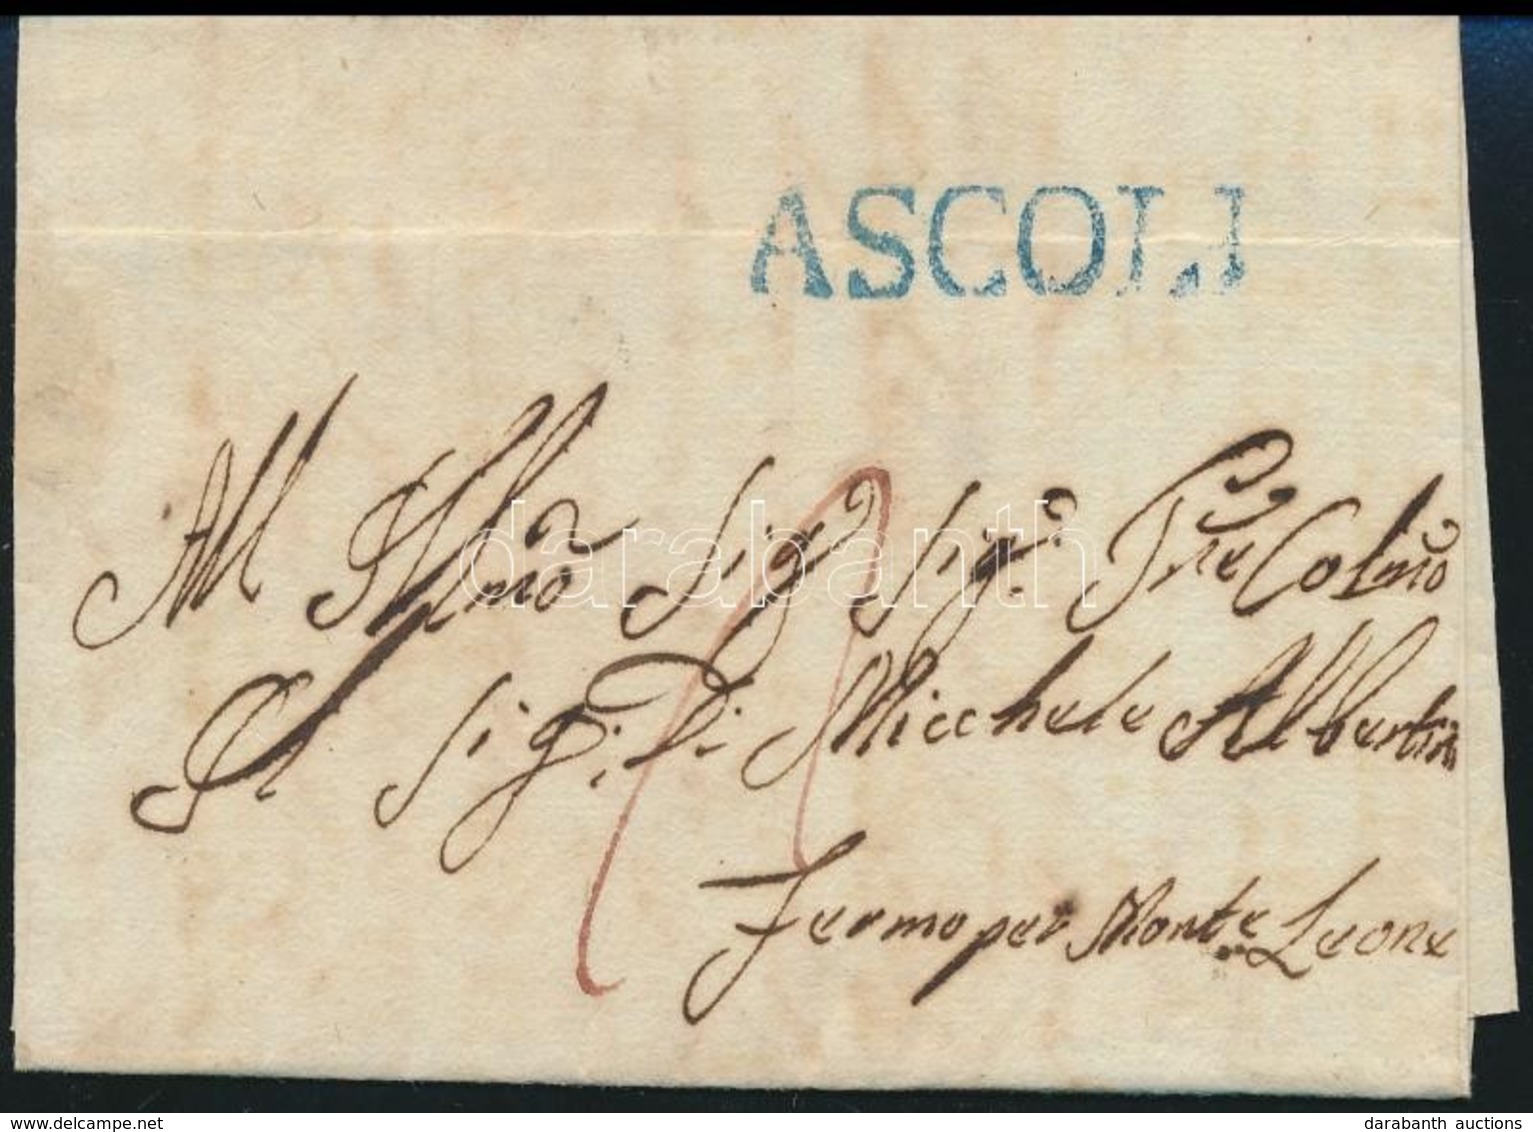 ASCOLI
All Illmo Sigr Sigr Pne Colmo
Il Sigr: Di Micchele Albertini
Fermo per Monte Leone
darabanth
www.delcampe.net
darabanth auctions